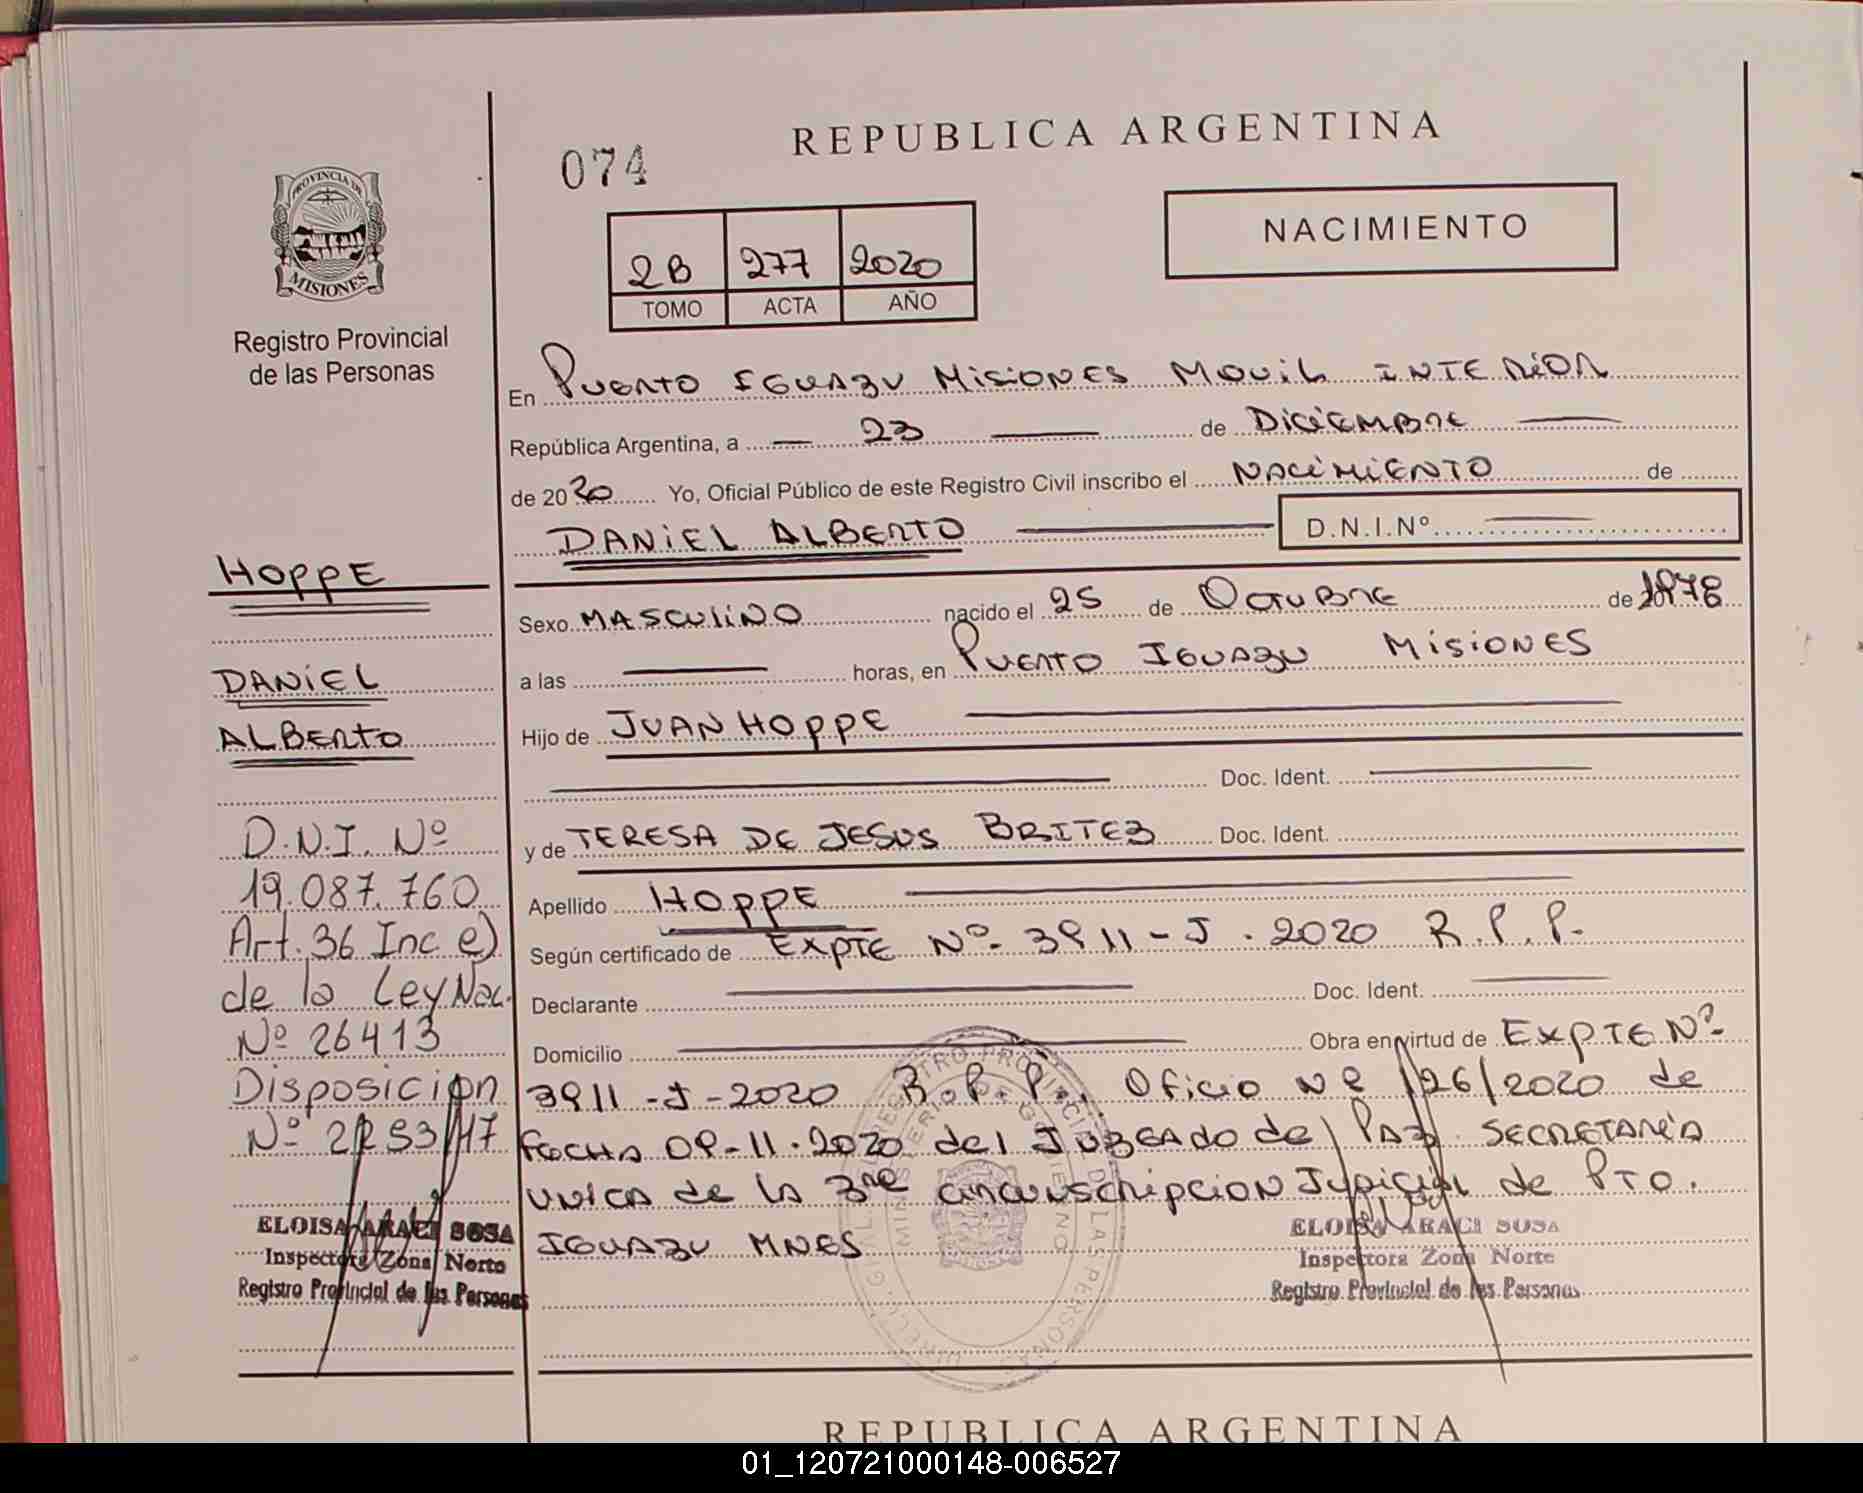 REPUBLICA ARGENTINA
074
NACIMIENTO
2B 277 2020
TOMO ACTA AÑO
PROVINCIA DE
MISIONES
Registro Provincial
de las Personas
En Puerto Iguazu Misiones Movil Interior
República Argentina, a 23 de Diciembre
de 2020 Yo, Oficial Público de este Registro Civil inscribo el Nacimiento de
DANIEL ALBERTO D.N.I.Nº
Sexo MASCULINO nacido el 25 de Octubre de 1978
a las horas, en Puerto Iguazu Misiones
Hijo de JUAN HOPPE
Doc. Ident.
y de TERESA DE JESUS BRITEZ Doc. Ident.
Apellido HOPPE
Según certificado de EXPTE Nº 3911-J-2020 R.P.P.
Declarante Doc. Ident.
Domicilio Obra en virtud de EXPTE Nº
3911-J-2020 R.P.P., Oficio Nº 126/2020 de
fecha 09-11-2020 del Juzgado de Paz Secretaria
unica de la 3ra circunscripcion Judicial de Pto.
Iguazu Mnes
ELOISA ARACI SOSA
Inspectora Zona Norte
Registro Provincial de las Personas
HOPPE
DANIEL
ALBERTO
D.N.I. Nº
19.087.760
Art. 36 Inc e)
de la Ley Nac.
Nº 26413
Disposicion
Nº 2253/17
ELOISA ARACI SOSA
Inspectora Zona Norte
Registro Provincial de las Personas
REPUBLICA ARGENTINA
01_120721000148-006527